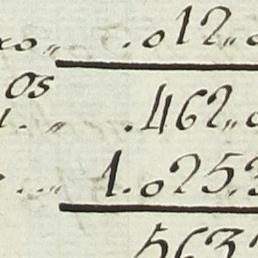 .012"
os
.462"
1.025.
563